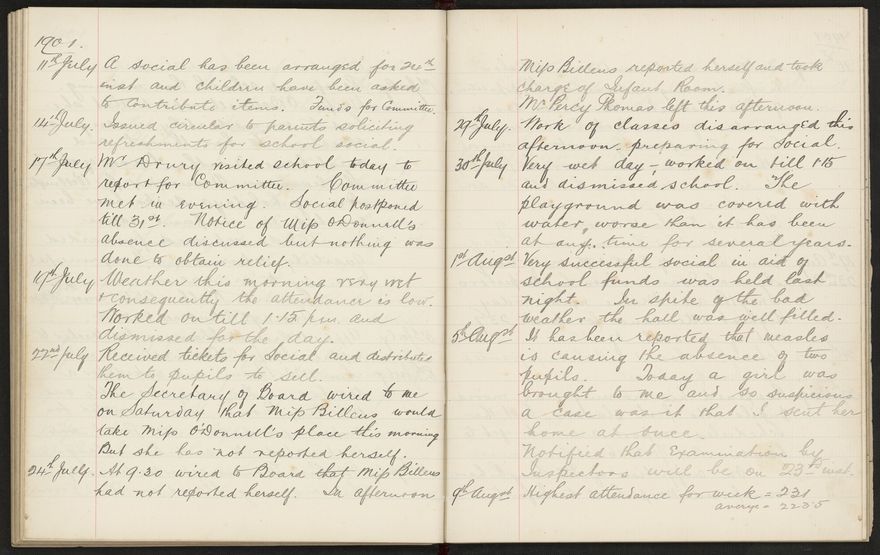 1901.
11th July A social has been arranged for 26th
inst and children have been asked
to contribute items. Funds for Committee.
14th July. Issued circular to parents soliciting
refreshments for school social.
17th July Mr Drury visited school today to
report for Committee. Committee
met in evening. Social postponed
till 31st. Notice of Miss O'Donnell's
absence discussed but nothing was
done to obtain relief.
July Weather this morning very wet
& consequently the attendance is low.
Worked on till 1.15 p.m. and
dismissed for the day.
22nd July Received tickets for Social and distributed
them to pupils to sell.
The Secretary of Board wired to me
on Saturday that Miss Billens would
take Miss O'Donnell's place this morning
But she has not reported herself.
24th July. At 9.30 wired to Board that Miss Billens
had not reported herself. In afternoon
Miss Billens reported herself and took
charge of Infant Room.
Mr Percy Thomas left this afternoon.
29th July. Work of classes disarranged this
afternoon preparing for Social.
30th July Very wet day – worked on till 1.15
and dismissed school. The
playground was covered with
water, worse than it has been
at any time for several years.
1st Augst Very successful social in aid of
school funds was held last
night. In spite of the bad
weather the hall was well filled.
5th Augst It has been reported that measles
is causing the absence of two
pupils. Today a girl was
brought to me and so suspicious
a case was it that I sent her
home at once.
Notified that Examination by
Inspectors will be on 23rd inst.
9th Augst Highest attendance for week = 231
average = 223.5